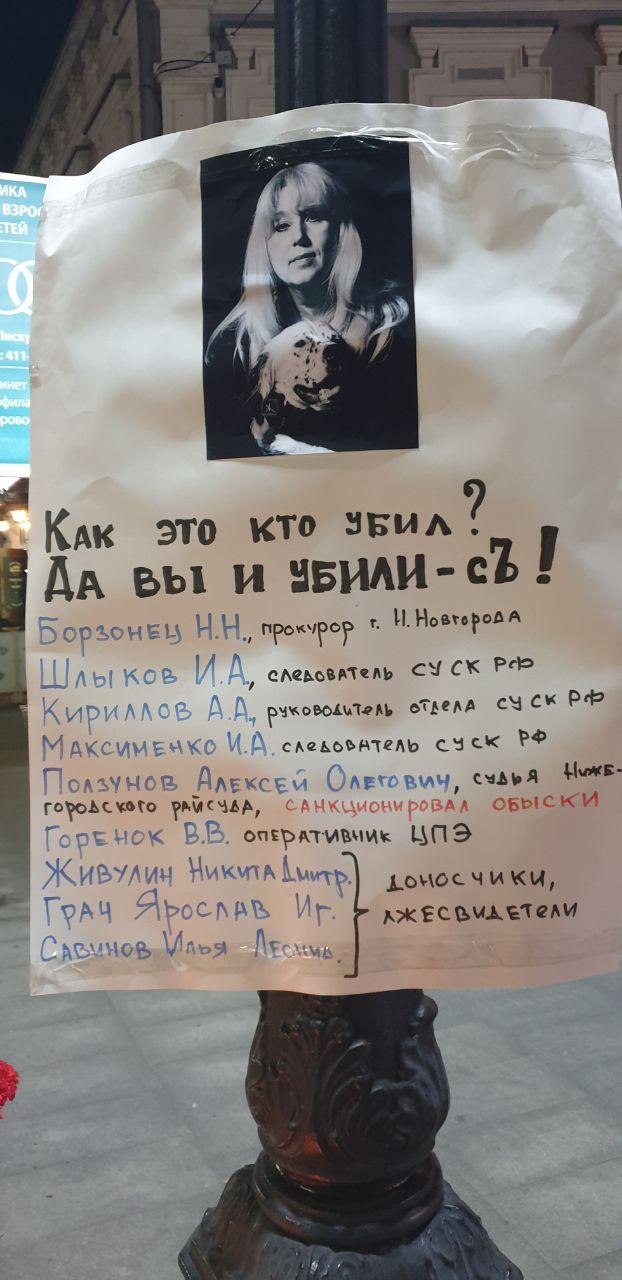 ИКА
ВЗРО
ЕТЕЙ
411-
инет
Как это кто убил?
Да вы и убили-съ!
Борзонец Н.Н., прокурор г. Н. Новгорода
Шлыков И.А., следователь СУ СК РФ
Кириллов А.А., руководитель отдела СУ СК РФ
Максименко И.А. следователь СУ СК РФ
Ползунов Алексей Олегович, судья Ниже-
городского райсуда, санкционировал обыски
Горенок В.В. оперативник ЦПЭ
Живулин Никита Дмитр.
Грач Ярослав Иг.
Савинов Илья Леонид.
доносчики,
лжесвидетели